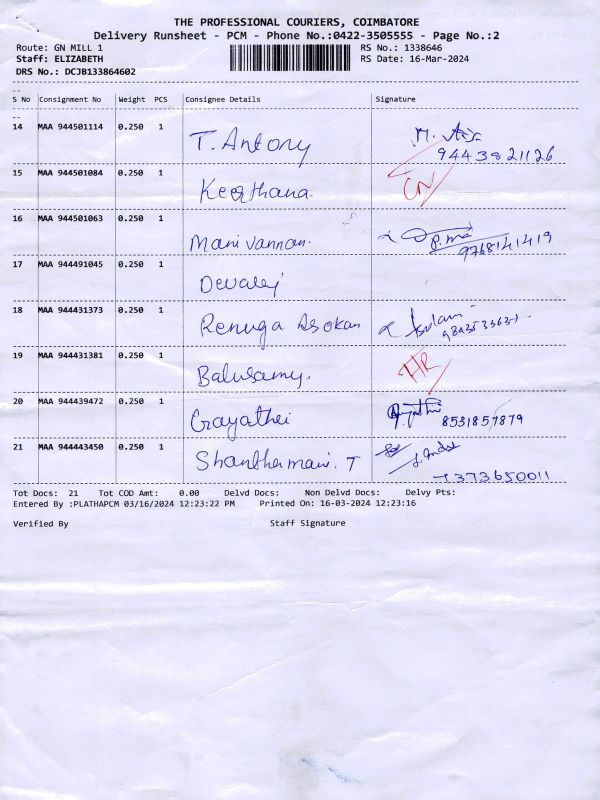 THE PROFESSIONAL COURIERS, COIMBATORE
Delivery Runsheet - PCM - Phone No.:0422-3505555 - Page No.:2
Route: GN MILL 1 RS No.: 1338646
Staff: ELIZABETH RS Date: 16-Mar-2024
DRS No.: DCJB133864602
S No Consignment No Weight PCS Consignee Details Signature
14 MAA 944501114 0.250 1 T. Antony
9443821126
15 MAA 944501084 0.250 1 Keerthana. CN
16 MAA 944501063 0.250 1 Manivannan.
9768141419
17 MAA 944491045 0.250 1 Devaraj
18 MAA 944431373 0.250 1 Renuga Asokan
19 MAA 944431381 0.250 1 Balusamy.
20 MAA 944439472 0.250 1 Gayathri 8531857879
21 MAA 944443450 0.250 1 Shanthamani. T
7373650011
Tot Docs: 21 Tot COD Amt: 0.00 Delvd Docs: Non Delvd Docs: Delvy Pts:
Entered By :PLATHAPCM 03/16/2024 12:23:22 PM Printed On: 16-03-2024 12:23:16
Verified By Staff Signature